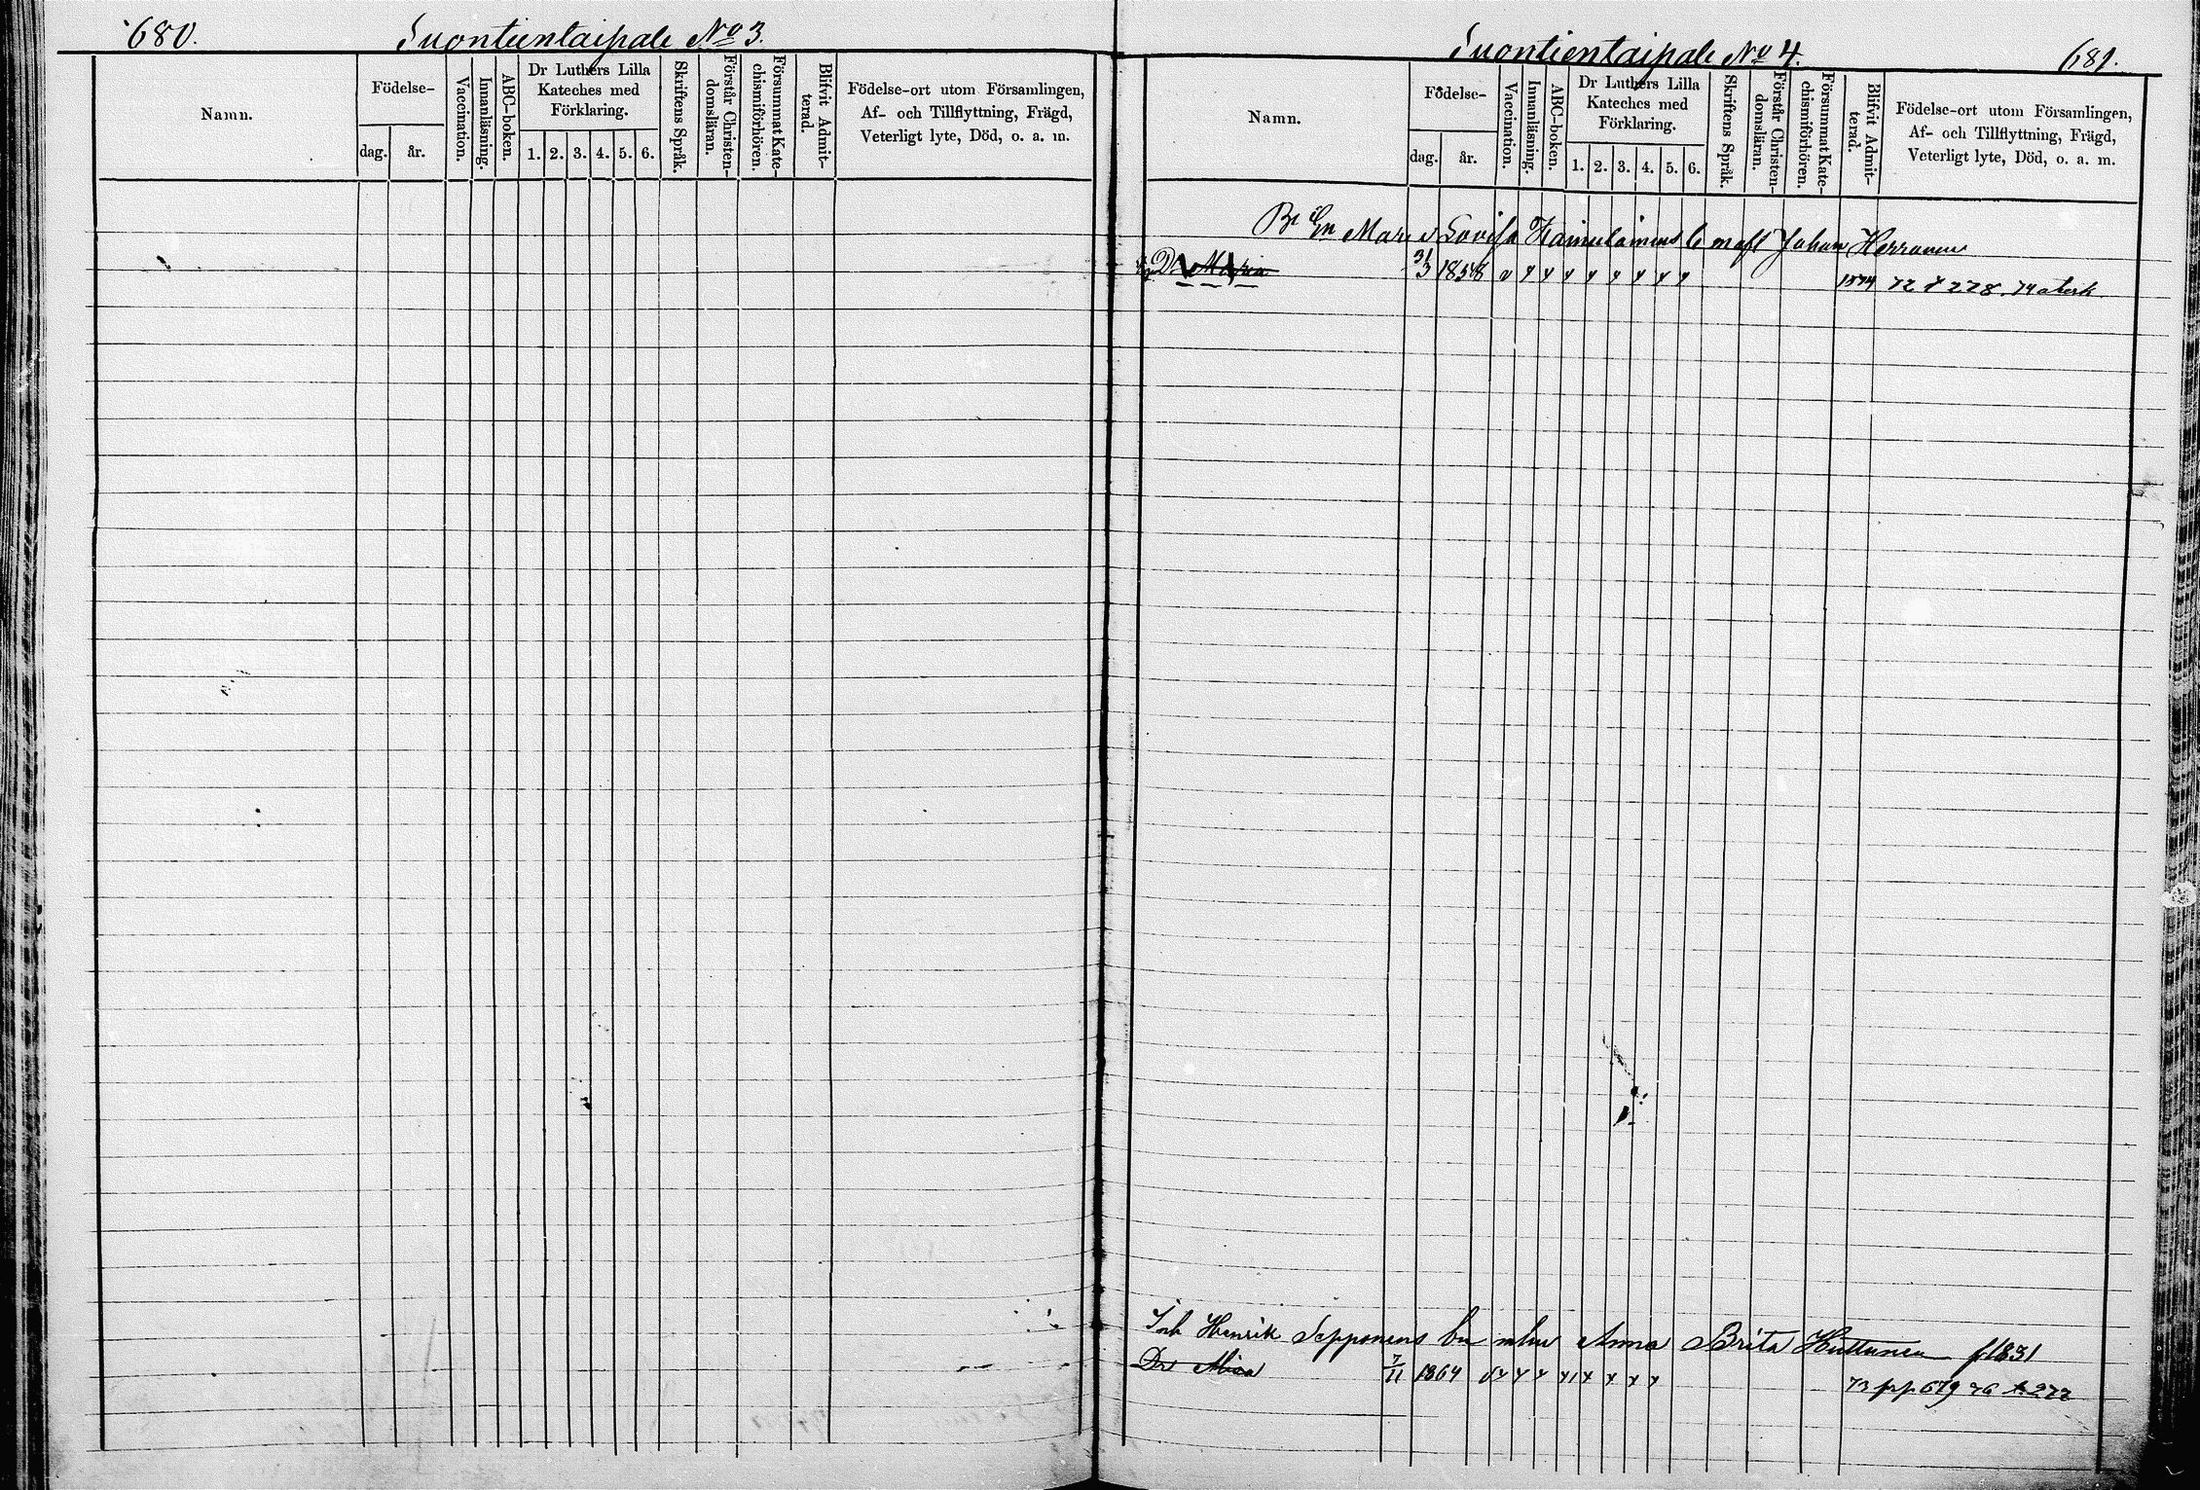 680.
Suontientaipale No 3.
Namn.
Födelse-
dag.
år.
Vaccination.
Innanläsning.
ABC-boken.
Dr Luthers Lilla
Kateches med
Förklaring.
1. 2. 3. 4. 5. 6.
Skriftens Språk.
Förstår Christen-
domsläran.
Försummat Kate-
chismiförhören.
Blifvit Admit-
terad.
Födelse-ort utom Församlingen,
Af- och Tillflyttning, Frägd,
Veterligt lyte, Död, o. a. m.
Suontientaipale No 4.
681.
Namn.
Födelse-
dag.
år.
Vaccination.
Innanläsning.
ABC-boken.
Dr Luthers Lilla
Kateches med
Förklaring.
1. 2. 3. 4. 5. 6.
Skriftens Språk.
Förstår Christen-
domsläran.
Försummat Kate-
chismiförhören.
Blifvit Admit-
terad.
Födelse-ort utom Församlingen,
Af- och Tillflyttning, Frägd,
Veterligt lyte, Död, o. a. m.
Lovisa Johan Herranen
Dr Maria 31/3 1858 1874 72 228. 74
Inh Henrik Sepponens Anna Brita Huttunen f 1831
Dr 7/11 1864 73 pp 679 76 272